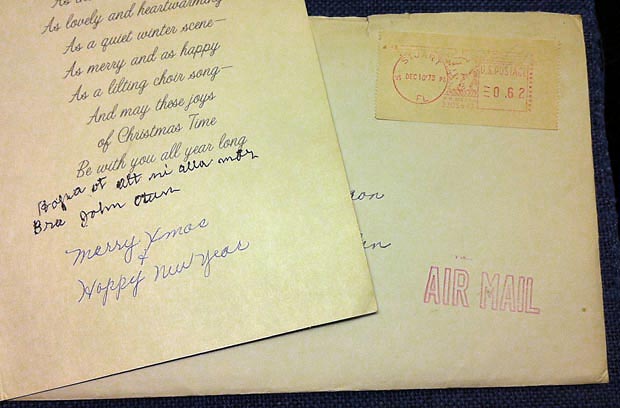 As lovely and heartwarming
As a quiet winter scene—
As merry and as happy
As a lilting choir song—
And may these joys
of Christmas Time
Be with you all year long
at att ni alla mår
Bra John
Merry Xmas
&
Happy New Year
DEC 10'73
FL
U.S. POSTAGE
0.62
AIR MAIL